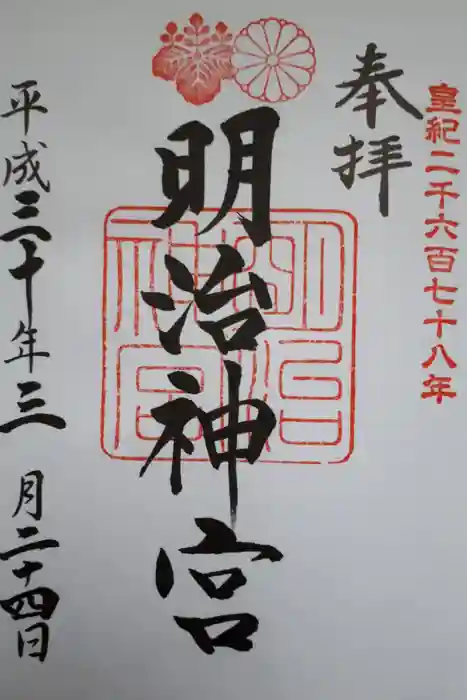 皇紀二千六百七十八年
奉拝
明治神宮
明治神宮
平成三十年三月二十四日